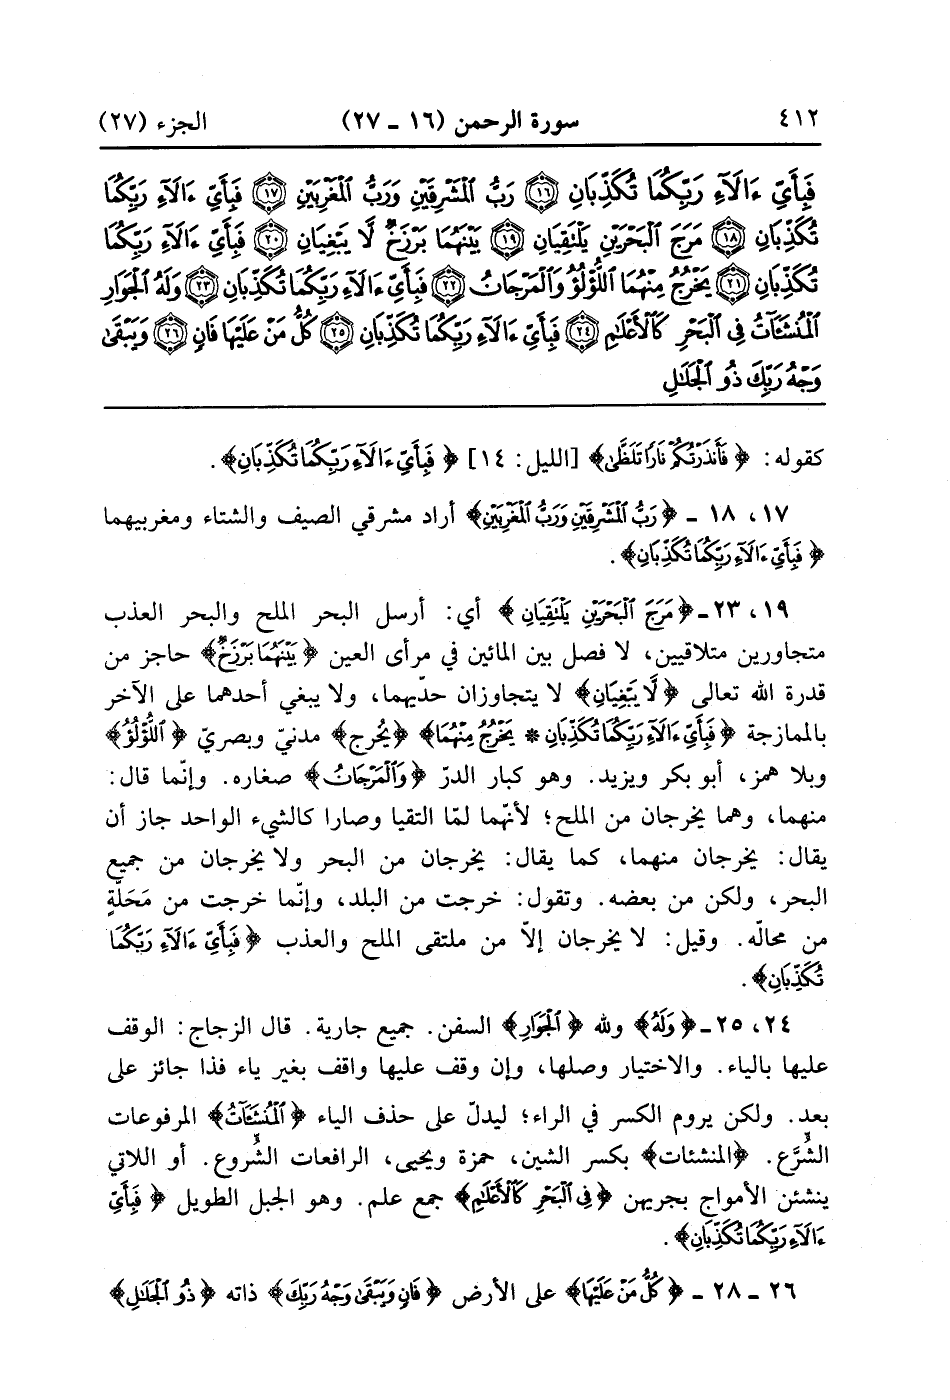 ٤١٢ سورة الرحمن (١٦ ـ ٢٧) الجزء (٢٧)
فَبِأَيِّ ءَالَآءِ رَبِّكُمَا تُكَذِّبَانِ ١٦ رَبُّ ٱلْمَشْرِقَيْنِ وَرَبُّ ٱلْمَغْرِبَيْنِ ١٧ فَبِأَيِّ ءَالَآءِ رَبِّكُمَا
تُكَذِّبَانِ ١٨ مَرَجَ ٱلْبَحْرَيْنِ يَلْتَقِيَانِ ١٩ بَيْنَهُمَا بَرْزَخٌ لَّا يَبْغِيَانِ ٢٠ فَبِأَيِّ ءَالَآءِ رَبِّكُمَا
تُكَذِّبَانِ ٢١ يَخْرُجُ مِنْهُمَا ٱللُّؤْلُؤُ وَٱلْمَرْجَانُ ٢٢ فَبِأَيِّ ءَالَآءِ رَبِّكُمَا تُكَذِّبَانِ ٢٣ وَلَهُ ٱلْجَوَارِ
ٱلْمُنشَـَٔاتُ فِى ٱلْبَحْرِ كَٱلْأَعْلَٰمِ ٢٤ فَبِأَيِّ ءَالَآءِ رَبِّكُمَا تُكَذِّبَانِ ٢٥ كُلُّ مَنْ عَلَيْهَا فَانٍ ٢٦ وَيَبْقَىٰ
وَجْهُ رَبِّكَ ذُو ٱلْجَلَٰلِ
كقوله: ﴿فَأَنذَرْتُكُمْ نَارًا تَلَظَّىٰ﴾ [الليل: ١٤] ﴿فَبِأَيِّ ءَالَآءِ رَبِّكُمَا تُكَذِّبَانِ﴾.
١٧، ١٨ ـ ﴿رَبُّ ٱلْمَشْرِقَيْنِ وَرَبُّ ٱلْمَغْرِبَيْنِ﴾ أراد مشرقي الصيف والشتاء ومغربيهما
﴿فَبِأَيِّ ءَالَآءِ رَبِّكُمَا تُكَذِّبَانِ﴾.
١٩، ٢٣ ـ ﴿مَرَجَ ٱلْبَحْرَيْنِ يَلْتَقِيَانِ﴾ أي: أرسل البحر الملح والبحر العذب
متجاورين متلاقيين، لا فصل بين المائين في مرأى العين ﴿بَيْنَهُمَا بَرْزَخٌ﴾ حاجز من
قدرة الله تعالى ﴿لَّا يَبْغِيَانِ﴾ لا يتجاوزان حدّيهما، ولا يبغي أحدهما على الآخر
بالممازجة ﴿فَبِأَيِّ ءَالَآءِ رَبِّكُمَا تُكَذِّبَانِ * يَخْرُجُ مِنْهُمَا﴾ ﴿يُخرج﴾ مدنيّ وبصريّ ﴿ٱللُّؤْلُؤُ﴾
وبلا همز، أبو بكر ويزيد. وهو كبار الدرّ ﴿وَٱلْمَرْجَانُ﴾ صغاره. وإنّما قال:
منهما، وهما يخرجان من الملح؛ لأنّهما لمّا التقيا وصارا كالشيء الواحد جاز أن
يقال: يخرجان منهما، كما يقال: يخرجان من البحر ولا يخرجان من جميع
البحر، ولكن من بعضه. وتقول: خرجت من البلد، وإنّما خرجت من مَحَلّةٍ
من محالّه. وقيل: لا يخرجان إلاّ من ملتقى الملح والعذب ﴿فَبِأَيِّ ءَالَآءِ رَبِّكُمَا
تُكَذِّبَانِ﴾.
٢٤، ٢٥ ـ ﴿وَلَهُ﴾ ولله ﴿ٱلْجَوَارِ﴾ السفن. جميع جارية. قال الزجاج: الوقف
عليها بالياء. والاختيار وصلها، وإن وقف عليها واقف بغير ياء فذا جائز على
بعد. ولكن يروم الكسر في الراء؛ ليدلّ على حذف الياء ﴿ٱلْمُنشَـَٔاتُ﴾ المرفوعات
الشُّرَّع. ﴿المنشئات﴾ بكسر الشين، حمزة ويحيى، الرافعات الشُّروع. أو اللاتي
ينشئن الأمواج بجريهن ﴿فِى ٱلْبَحْرِ كَٱلْأَعْلَٰمِ﴾ جمع علم. وهو الجبل الطويل ﴿فَبِأَيِّ
ءَالَآءِ رَبِّكُمَا تُكَذِّبَانِ﴾.
٢٦ ـ ٢٨ ـ ﴿كُلُّ مَنْ عَلَيْهَا﴾ على الأرض ﴿فَانٍ وَيَبْقَىٰ وَجْهُ رَبِّكَ﴾ ذاته ﴿ذُو ٱلْجَلَٰلِ﴾